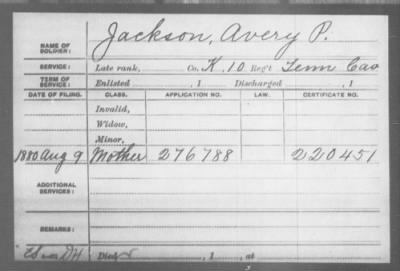 NAME OF SOLDIER: Jackson, Avery P.
SERVICE: Late rank, Co. K. 10 Reg't Tenn Cav
TERM OF SERVICE: Enlisted , 1 Discharged , 1
DATE OF FILING. CLASS. APPLICATION NO. LAW. CERTIFICATE NO.
Invalid,
Widow,
Minor,
1880 Aug 9 Mother 276788 220451
ADDITIONAL SERVICES:
REMARKS:
Died , 1 , at